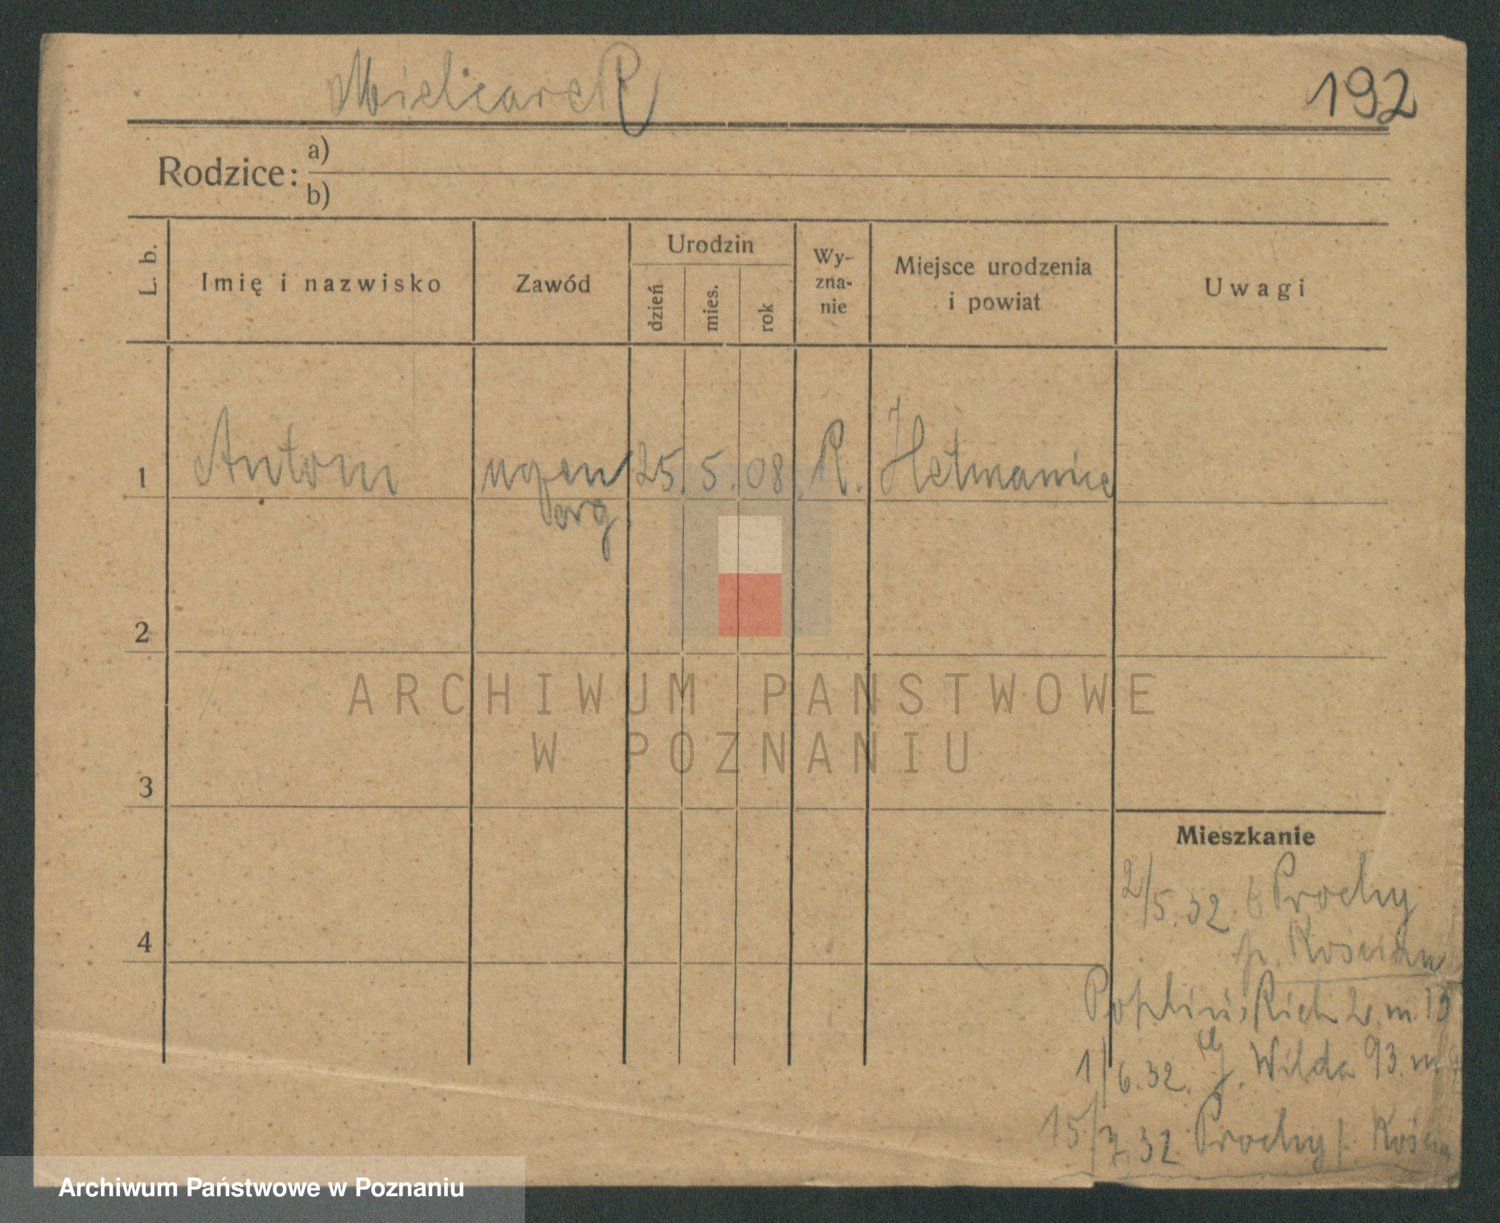 Mielcarek
192
Rodzice: a)
b)
L. b.
Imię i nazwisko
Zawód
Urodzin
dzień
mies.
rok
Wy-
zna-
nie
Miejsce urodzenia
i powiat
Uwagi
1 Antoni 25. 5. 08. R. Hetmanice
2
ARCHIWUM PAŃSTWOWE
W POZNANIU
3
Mieszkanie
2/5. 32 Prochy
p. Kościan
m 19
1/6. 32. G. Wilda 93. m
15/7. 32 Prochy p. Kościan
4
Archiwum Państwowe w Poznaniu